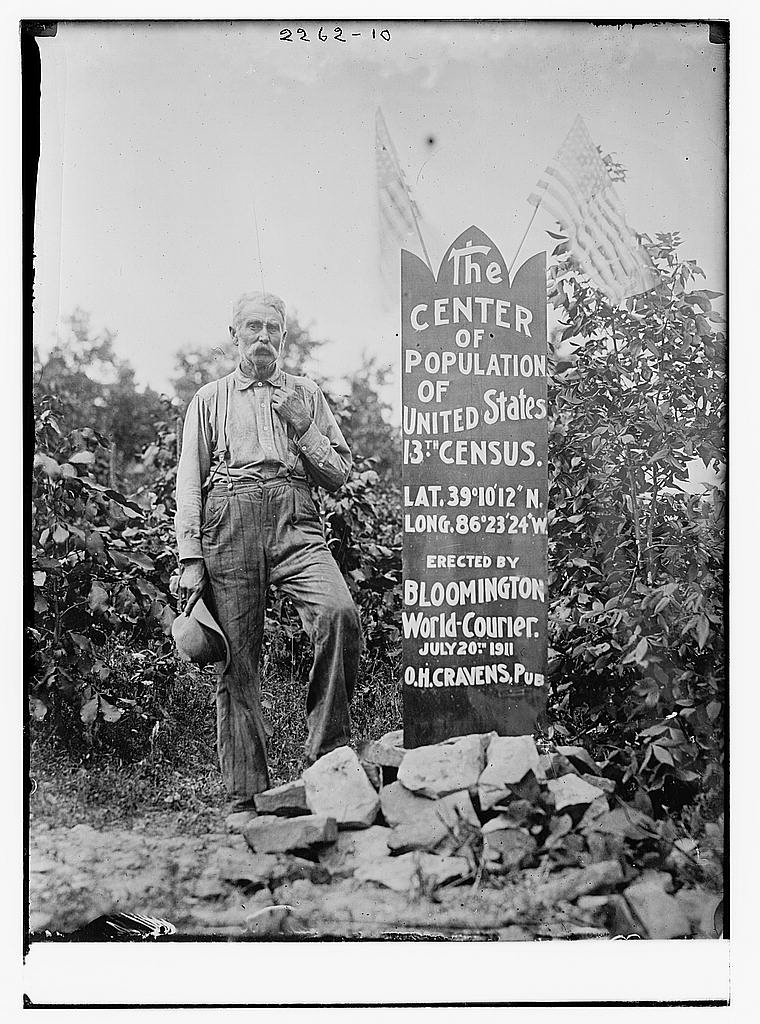 2262-10
The
CENTER
OF
POPULATION
OF
UNITED States
13TH CENSUS.
LAT. 39°10'12" N.
LONG. 86°23'24" W
ERECTED BY
BLOOMINGTON
World-Courier.
JULY 20TH 1911
O.H. CRAVENS, PUB